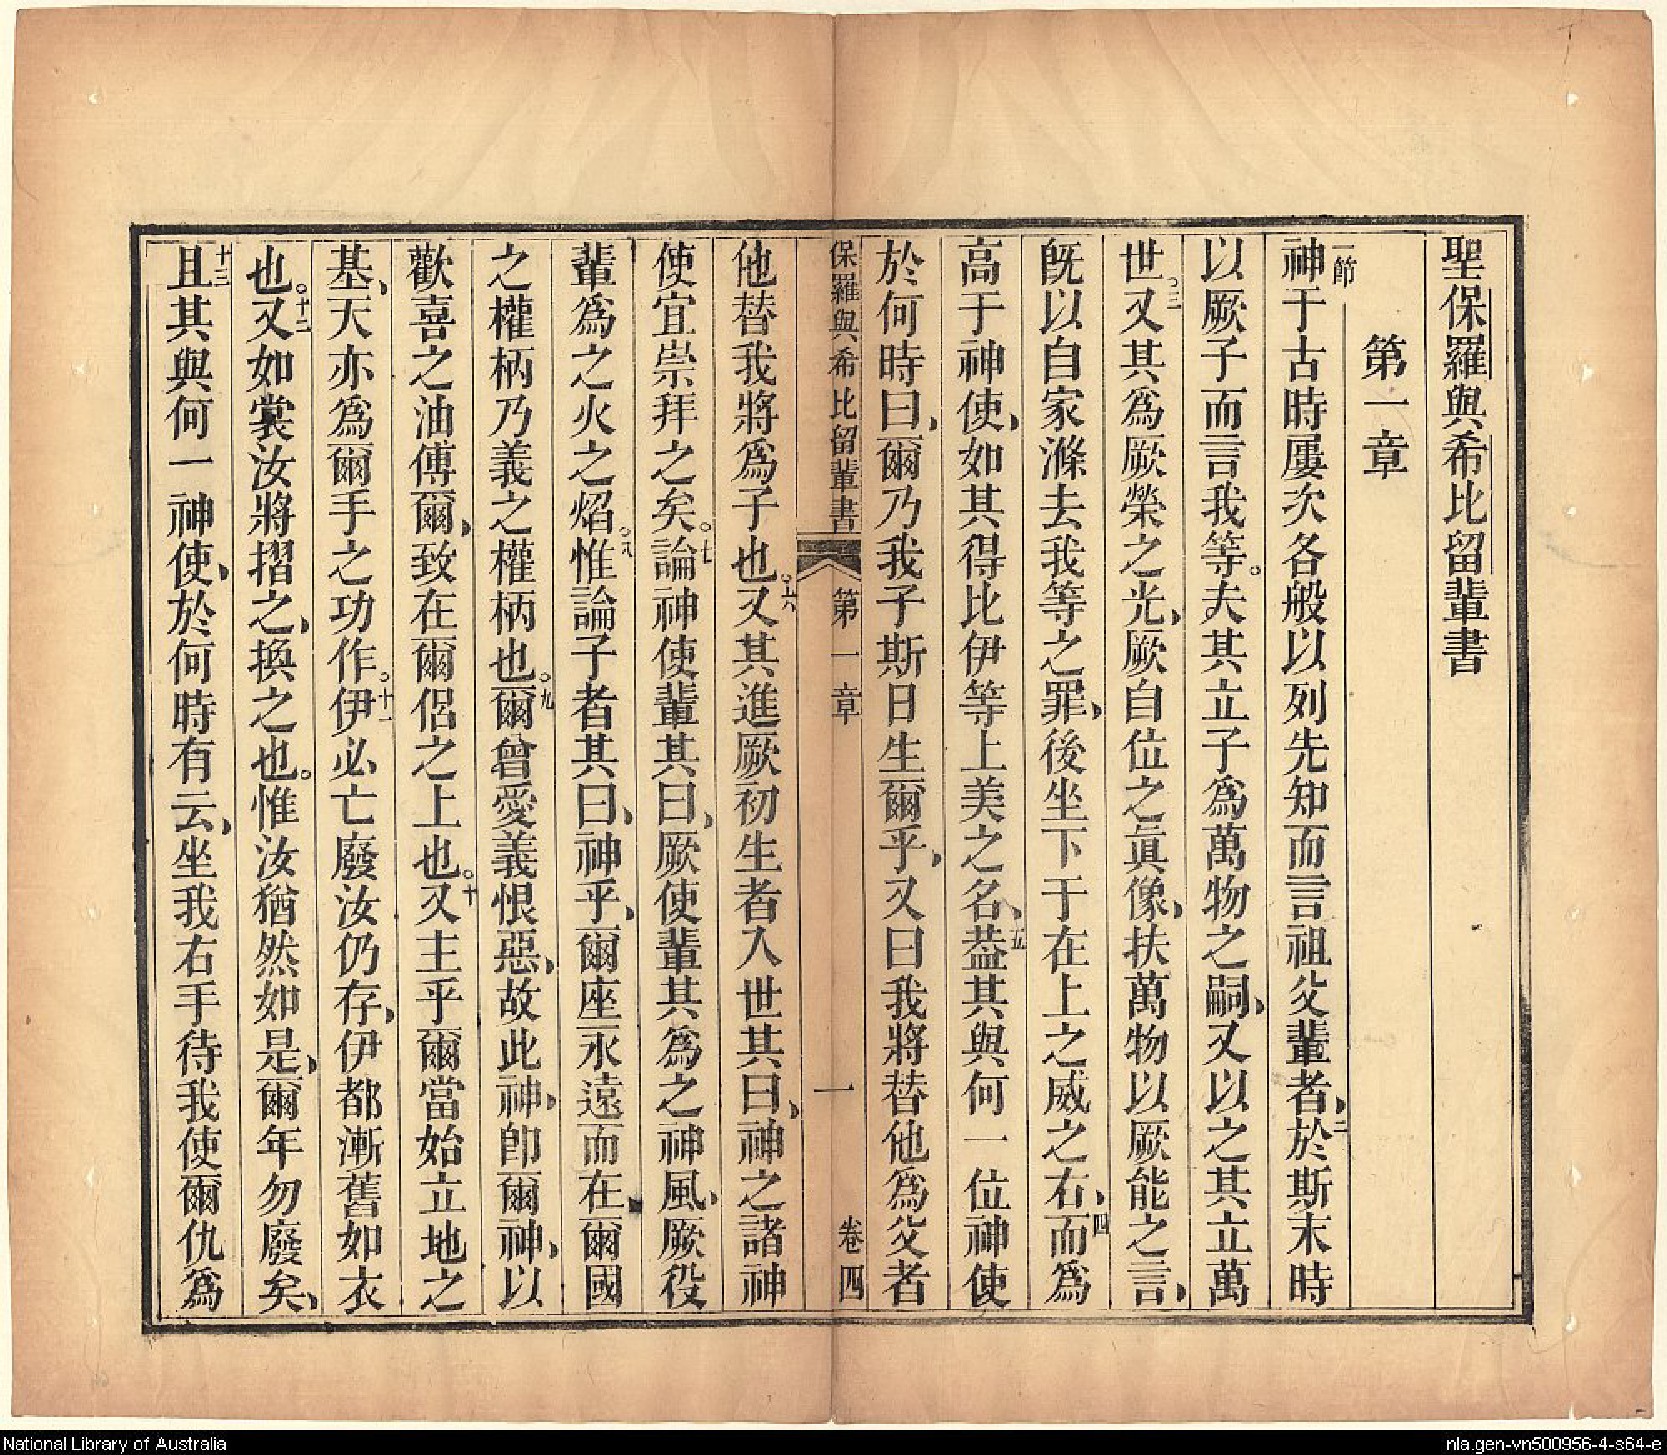 聖保羅與希比留輩書
第一章
一節
神于古時屢次各般以列先知而言祖父輩者、二於斯末時
以厥子而言我等。夫其立子爲萬物之嗣、又以之其立萬
世。三又其爲厥榮之光、厥自位之眞像、扶萬物以厥能之言、
旣以自家滌去我等之罪、後坐下于在上之威之右、四而爲
高于神使、如其得比伊等上美之名、五葢其與何一位神使
於何時曰、爾乃我子斯日生爾乎、又曰我將替他爲父者
保羅與希比留輩書 第一章 一 卷四
他替我將爲子也。六又其進厥初生者入世其曰、神之諸神
使宜崇拜之矣。七論神使輩其曰、厥使輩其爲之神風、厥役
輩爲之火之焰。八惟論子者其曰、神乎、爾座永遠而在爾國
之權柄乃義之權柄也。九爾曾愛義恨惡、故此神、卽爾神、以
歡喜之油傅爾、致在爾侶之上也。十又主乎爾當始立地之
基、天亦爲爾手之功作。十一伊必亡廢汝仍存、伊都漸舊如衣
也。十二又如裳汝將摺之、換之也。惟汝猶然如是、爾年勿廢矣、
十三且其與何一神使、於何時有云、坐我右手待我使爾仇爲
National Library of Australia
nla.gen-vn500956-4-s64-e